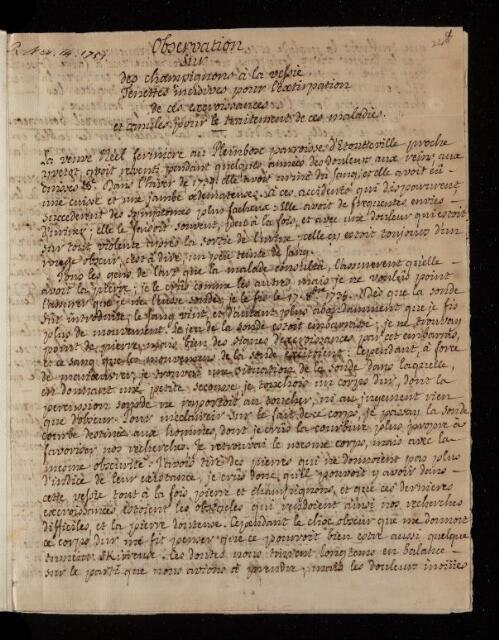 R. Nov. 14. 1757.
Observation
sur
des champignons à la vessie,
Tenettes incisives pour l'extirpation
de ces excroissances
et canules pour le traitement de ces maladies.
La veuve Neel fermiere au Pleinbosc parroisse d'Etouteville proche
yvetot, avoit ressenti pendant quelques années des douleurs aux reins aux
cuisses &c. Dans l'hiver de 1754 elle avoit uriné du sang, et elle avoit eü
une cuisse et une jambe œdemateuses. à ces accidents qui disparurent
succederent des symptomes plus facheux. Elle avoit de frequentes envies
d'uriner; elle le faisoit souvent, peu à la fois, et avec une douleur qui estoit
sur tout violente après la sortie de l'urine. celle cy estoit toujours d'un
rouge obscur, c'est à dire, un peu teinte de sang.
Tous les gens de l'art que la malade consulta, l'assurerent qu'elle
avoit la pierre; je le crus comme les autres mais je ne voulus point
l'assurer que je ne l'eusse sondée, je le fis le 17. 1754. Dès que la sonde
fut introduite, le sang vint, et d'autant plus abondamment que je fis
plus de mouvement. Le jeu de la sonde estoit embarrassé; je ne trouvay
point de pierre, mais bien des signes d'excroissances par cet embarras,
et ce sang que les mouvemens de la sonde excitoient. Cependant, à force
de manœuvrer je trouvay une situation de la sonde dans laquelle,
en donnant une petite secousse, je touchois un corps dur, dont la
percussion sourde ne rapportoit au toucher, ni au jugement rien
que d'obscur. Pour m'eclaircir sur le fait de ce corps, je passay la sonde
courbe destinée aux hommes, dont je crus la courbure plus propre à
favoriser nos recherches. Je retrouvai le mesme corps, mais avec la
mesme obscurité. J'avois tiré des pierres qui ne donnoient pas plus
d'indice de leur existance, je crus donc, qu'il pouvoit y avoir dans
cette vessie tout à la fois pierre et champignons, et que ces dernieres
excroissances estoient les obstacles qui rendoient ainsi nos recherches
difficiles, et la pierre douteuse. Cependant le choc obscur que me donnoit
ce corps dur me fit penser que ce pourroit bien estre aussi quelque
tumeur skirreuse. Ces doutes nous tinrent longtems en balance
sur le parti que nous avions à prendre; mais les douleurs inoüies